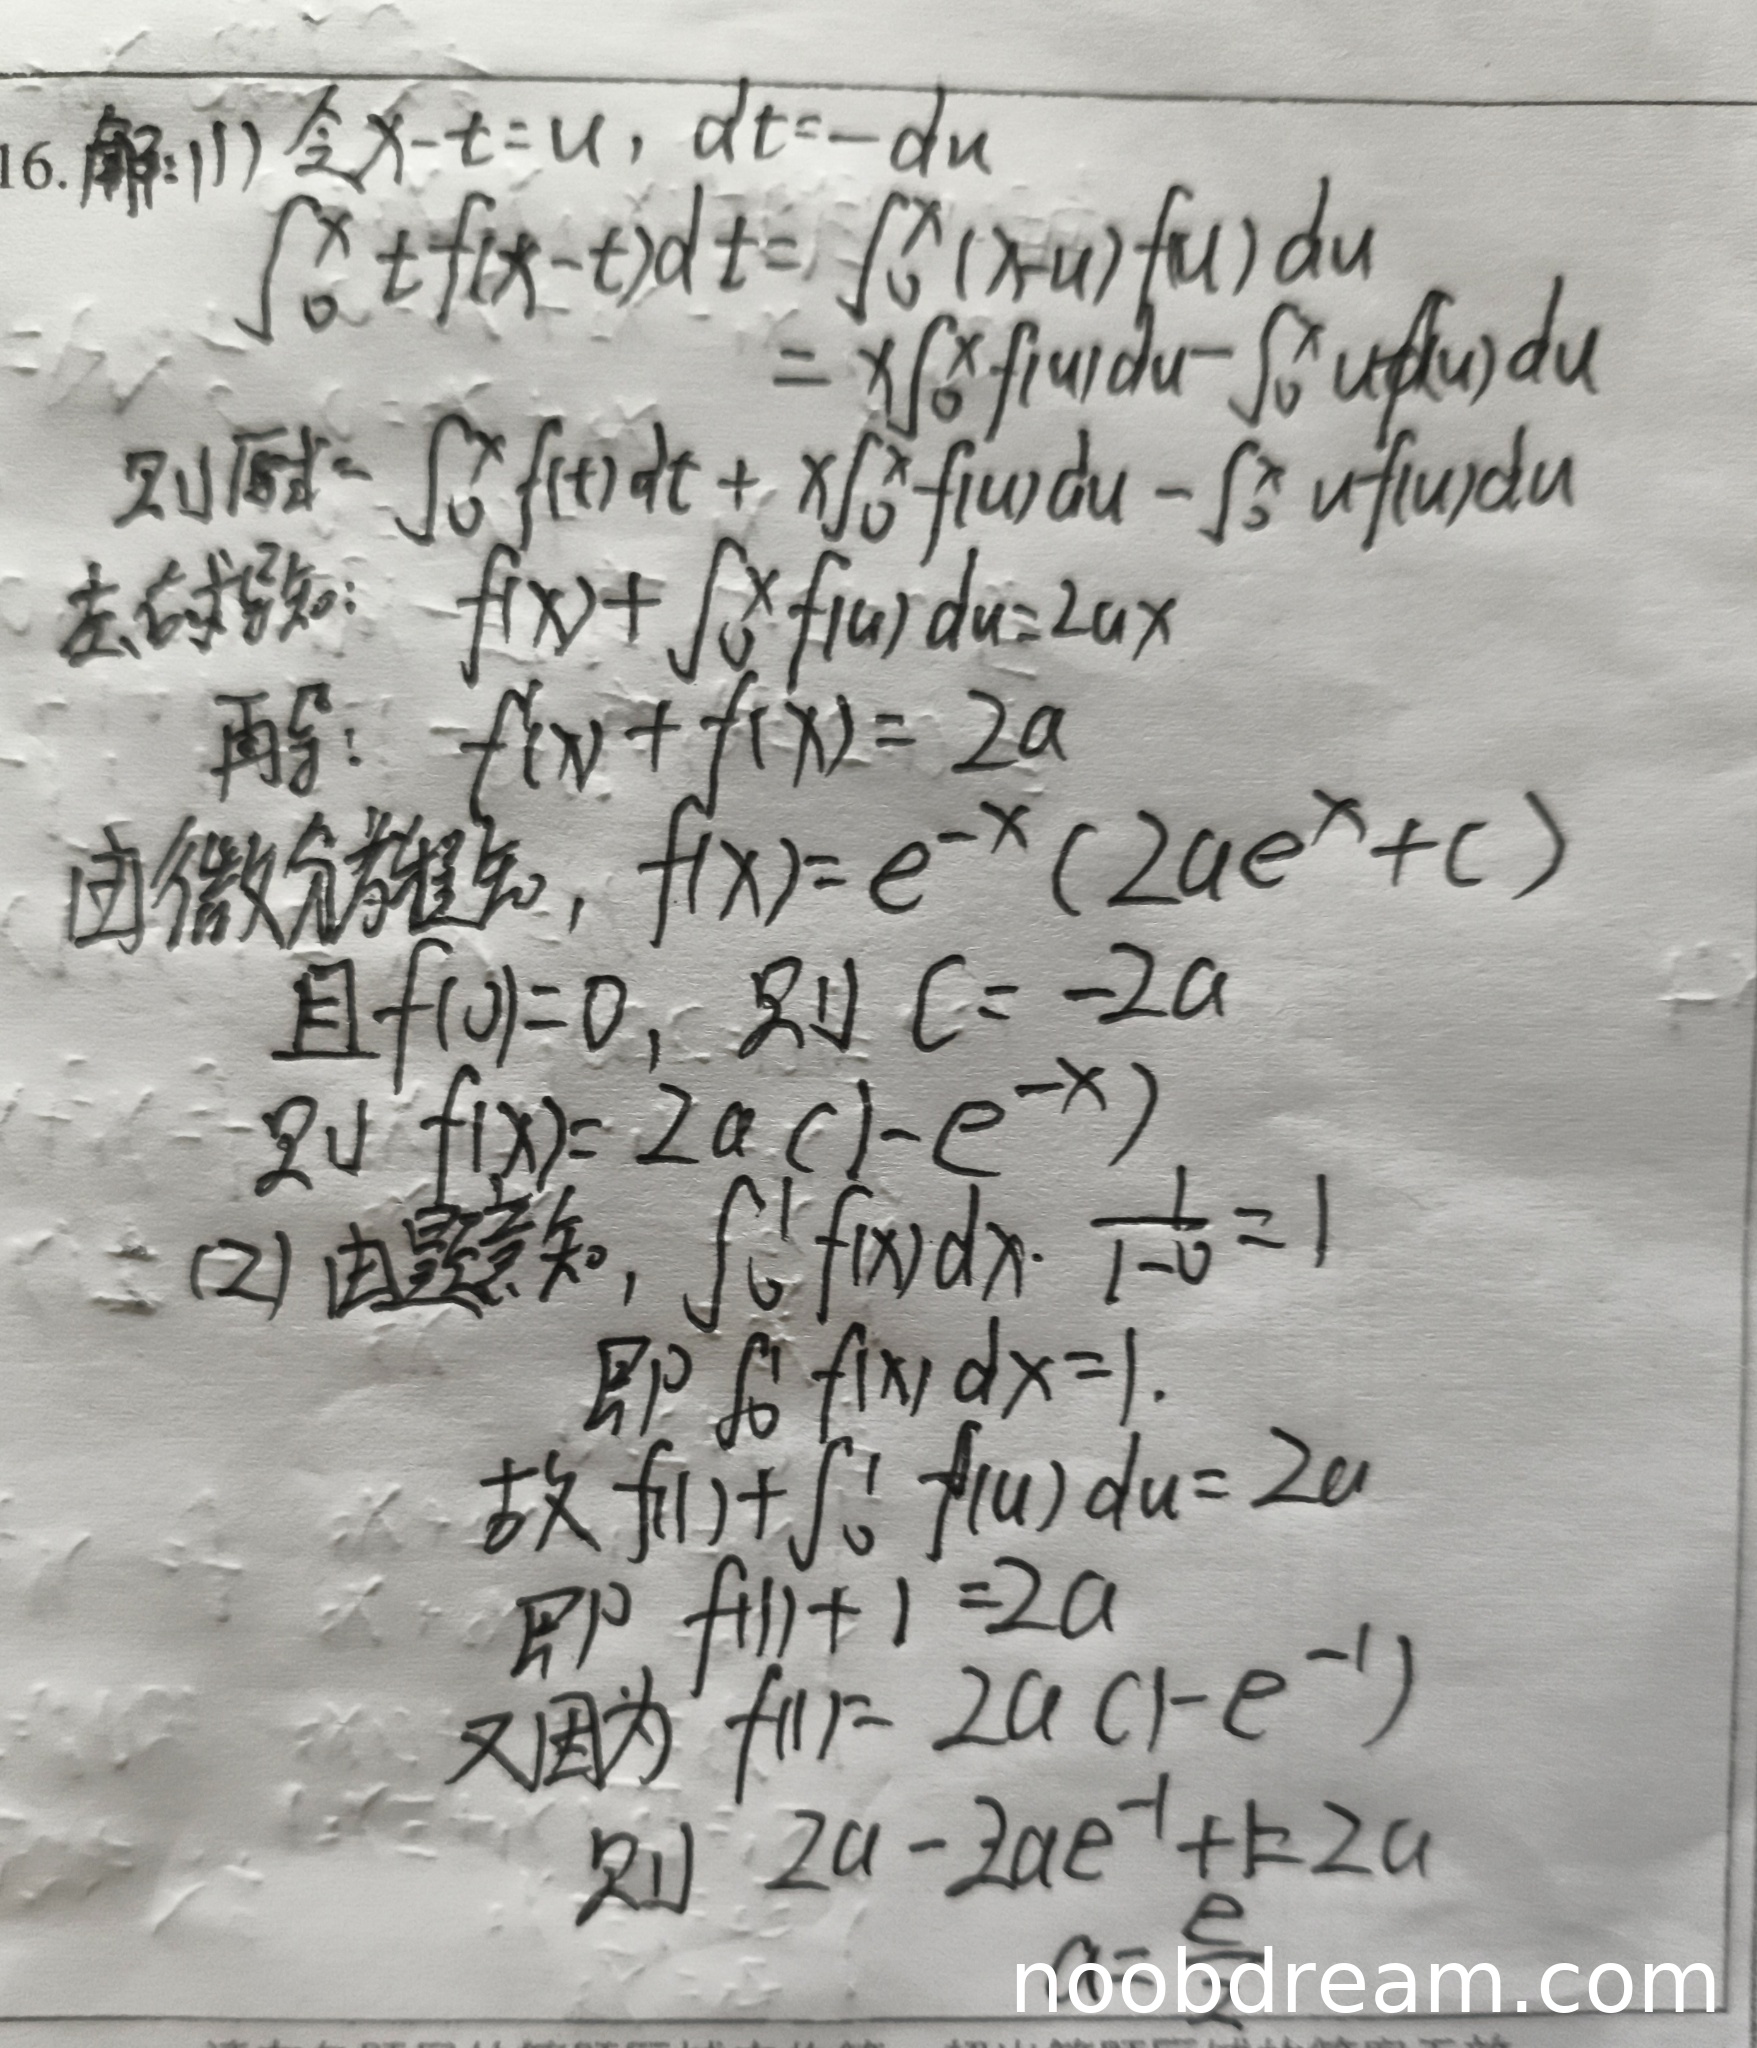 16. 解:(1) 令x-t=u, dt=-du
∫₀ˣ t f(x-t)dt = ∫₀ˣ (x-u) f(u) du
= x∫₀ˣ f(u)du - ∫₀ˣ u f(u) du
则原式= ∫₀ˣ f(t)dt + x∫₀ˣ f(u)du - ∫₀ˣ u f(u)du
左右求导知: f(x)+∫₀ˣ f(u) du=2ax
再导: f'(x)+f(x)= 2a
由微分方程知, f(x)= e⁻ˣ (2aeˣ+C)
且f(0)=0, 则 C= -2a
则 f(x)= 2a (1-e⁻ˣ)
(2) 由题意知, ∫₀¹ f(x)dx · 1/(1-0) = 1
即 ∫₀¹ f(x) dx=1.
故 f(1)+∫₀¹ f(u) du= 2a
即 f(1)+1 =2a
又因为 f(1)= 2a (1-e⁻¹)
则 2a-2ae⁻¹+1=2a
a= e/2
noobdream.com